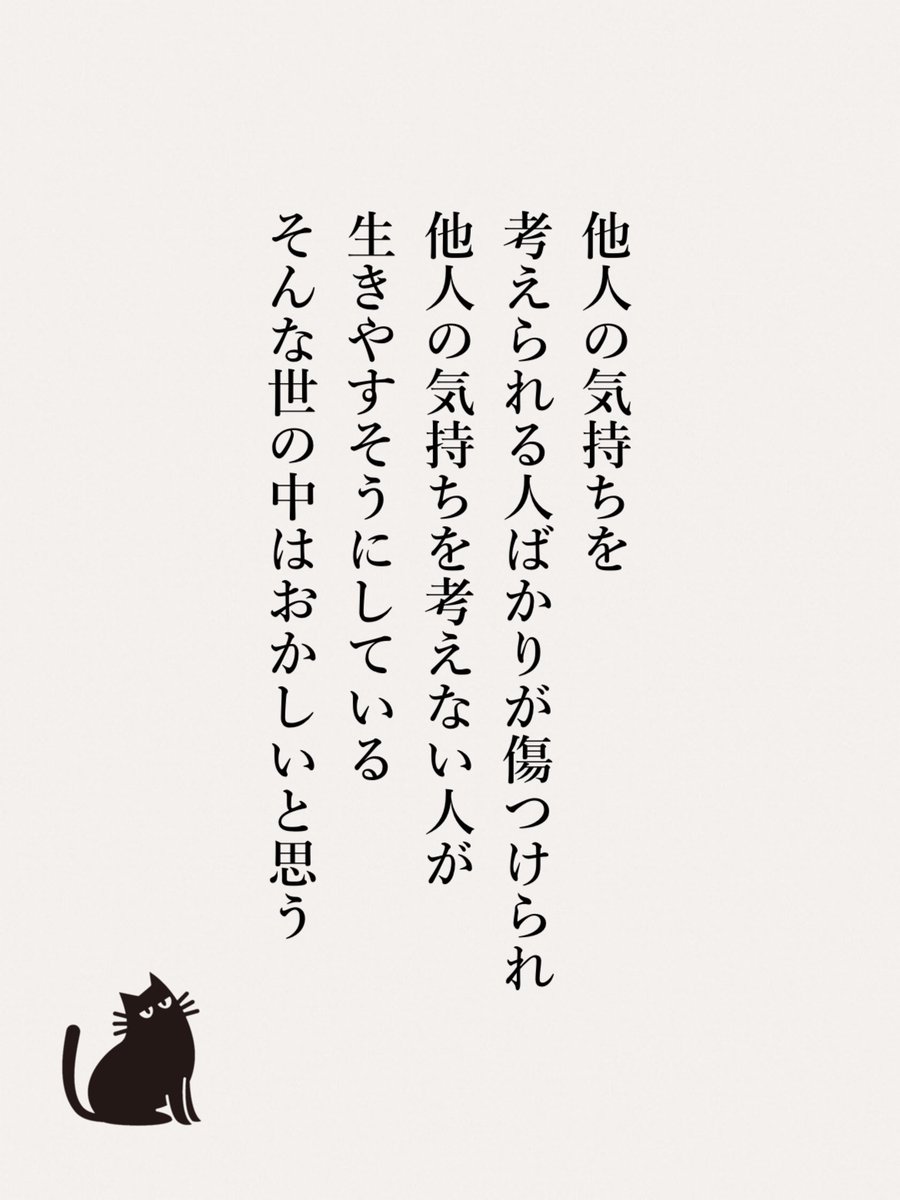 他人の気持ちを
考えられる人ばかりが傷つけられ
他人の気持ちを考えない人が
生きやすそうにしている
そんな世の中はおかしいと思う